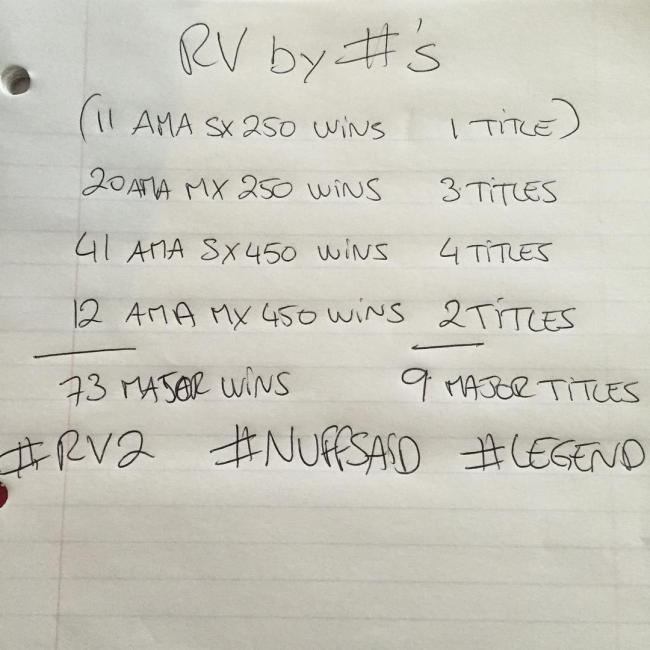 RV by #'s
(11 AMA SX 250 WINS 1 TITLE)
20 AMA MX 250 WINS 3 TITLES
41 AMA SX 450 WINS 4 TITLES
12 AMA MX 450 WINS 2 TITLES
73 MAJOR WINS 9 MAJOR TITLES
#RV2 #NUFFSAID #LEGEND